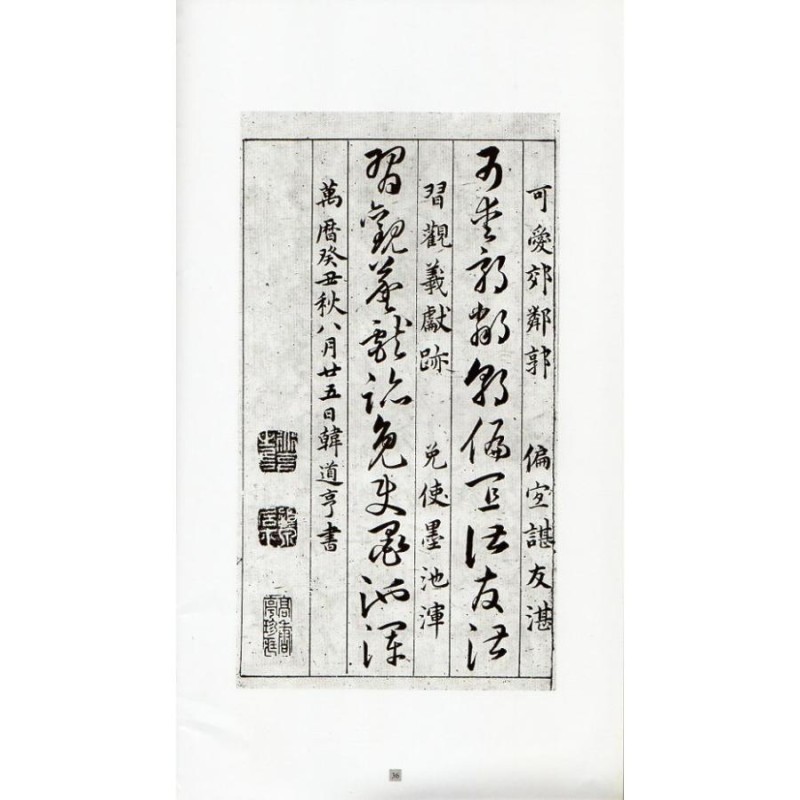 可愛郊鄰郭 偏宜諶友湛
可愛郊鄰郭偏宜諶友湛
習觀義獻跡 免使墨池渾
習觀義獻跡免使墨池渾
萬曆癸丑秋八月廿五日韓道亨書
36